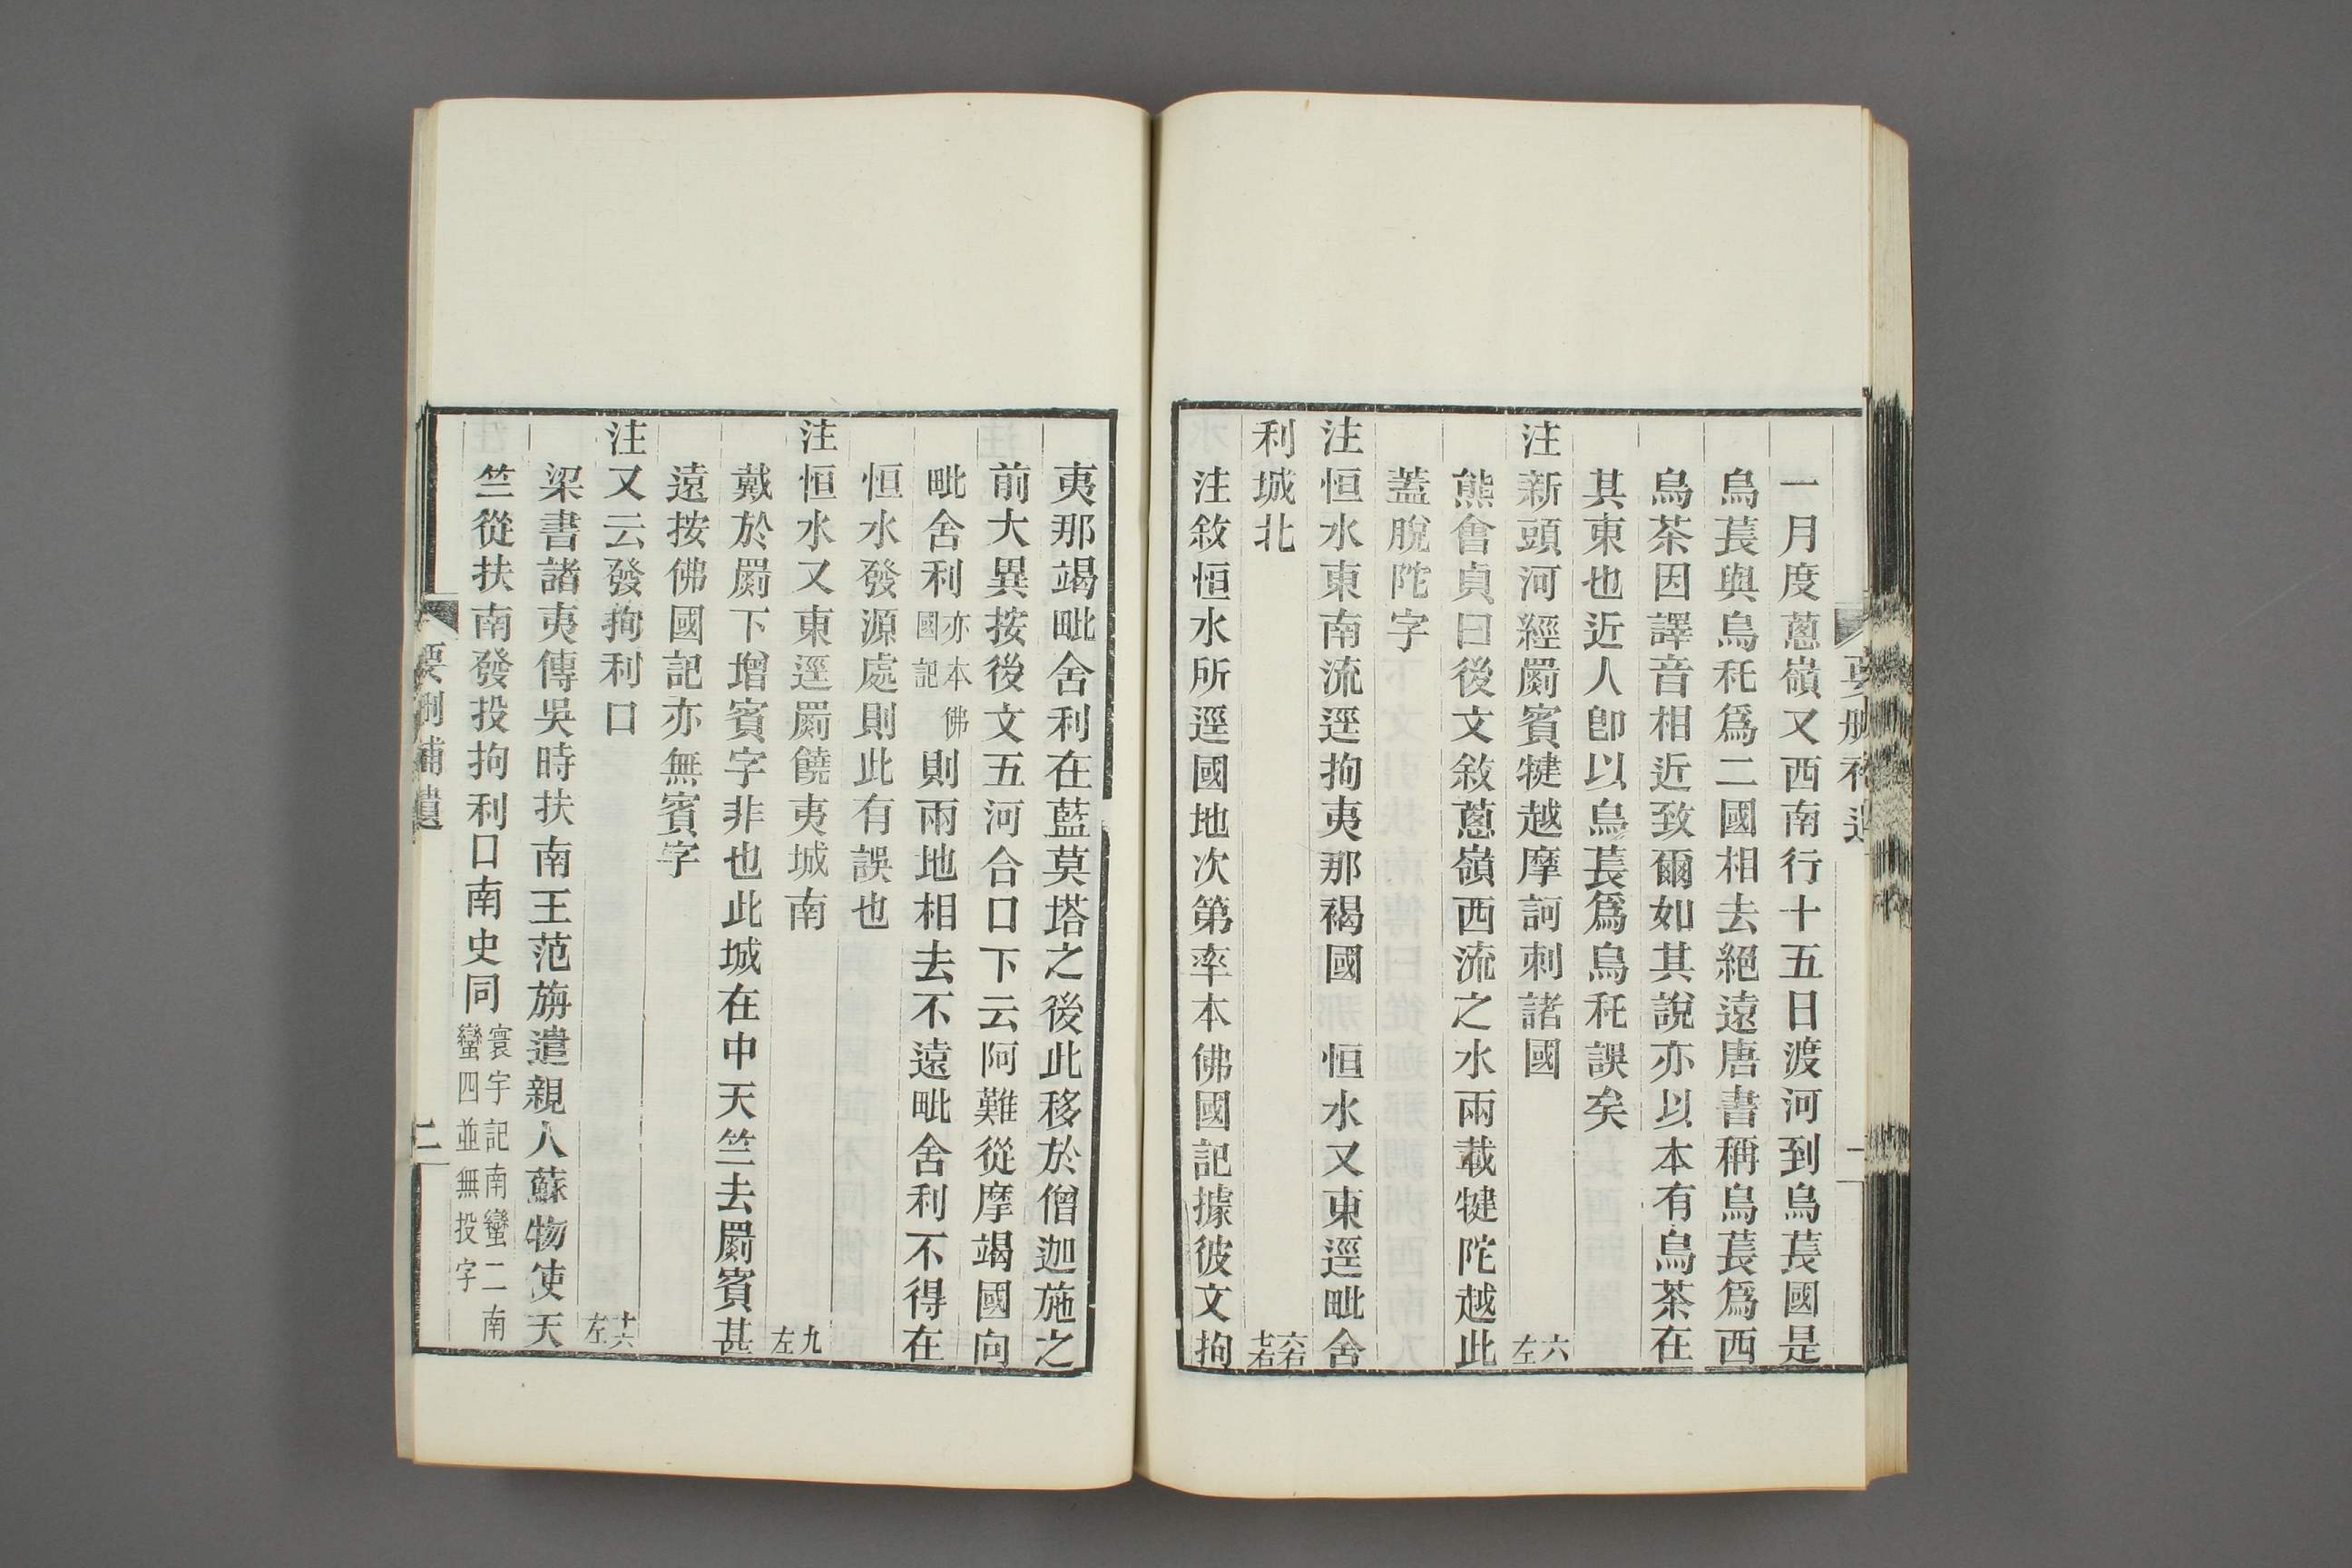 要刪補遺
一
一月度蔥嶺又西南行十五日渡河到烏萇國是
烏萇與烏秅爲二國相去絕遠唐書稱烏萇爲西
烏茶因譯音相近致爾如其說亦以本有烏茶在
其東也近人卽以烏萇爲烏秅誤矣
注新頭河經罽賓犍越摩訶刺諸國 六左
熊會貞曰後文敘蔥嶺西流之水兩載犍陀越此
蓋脫陀字
注恒水東南流逕拘夷那褐國 恒水又東逕毗舍
利城北 六右 七右
注敘恒水所逕國地次第率本佛國記據彼文拘
夷那竭毗舍利在藍莫塔之後此移於僧迦施之
前大異按後文五河合口下云阿難從摩竭國向
毗舍利亦本佛國記則兩地相去不遠毗舍利不得在
恒水發源處則此有誤也
注恒水又東逕罽饒夷城南 九左
戴於罽下增賓字非也此城在中天竺去罽賓甚
遠按佛國記亦無賓字
注又云發拘利口 十六左
梁書諸夷傳吳時扶南王范旃遣親人蘇物使天
竺從扶南發投拘利口南史同寰宇記南蠻二南蠻四並無投字
要刪補遺
二